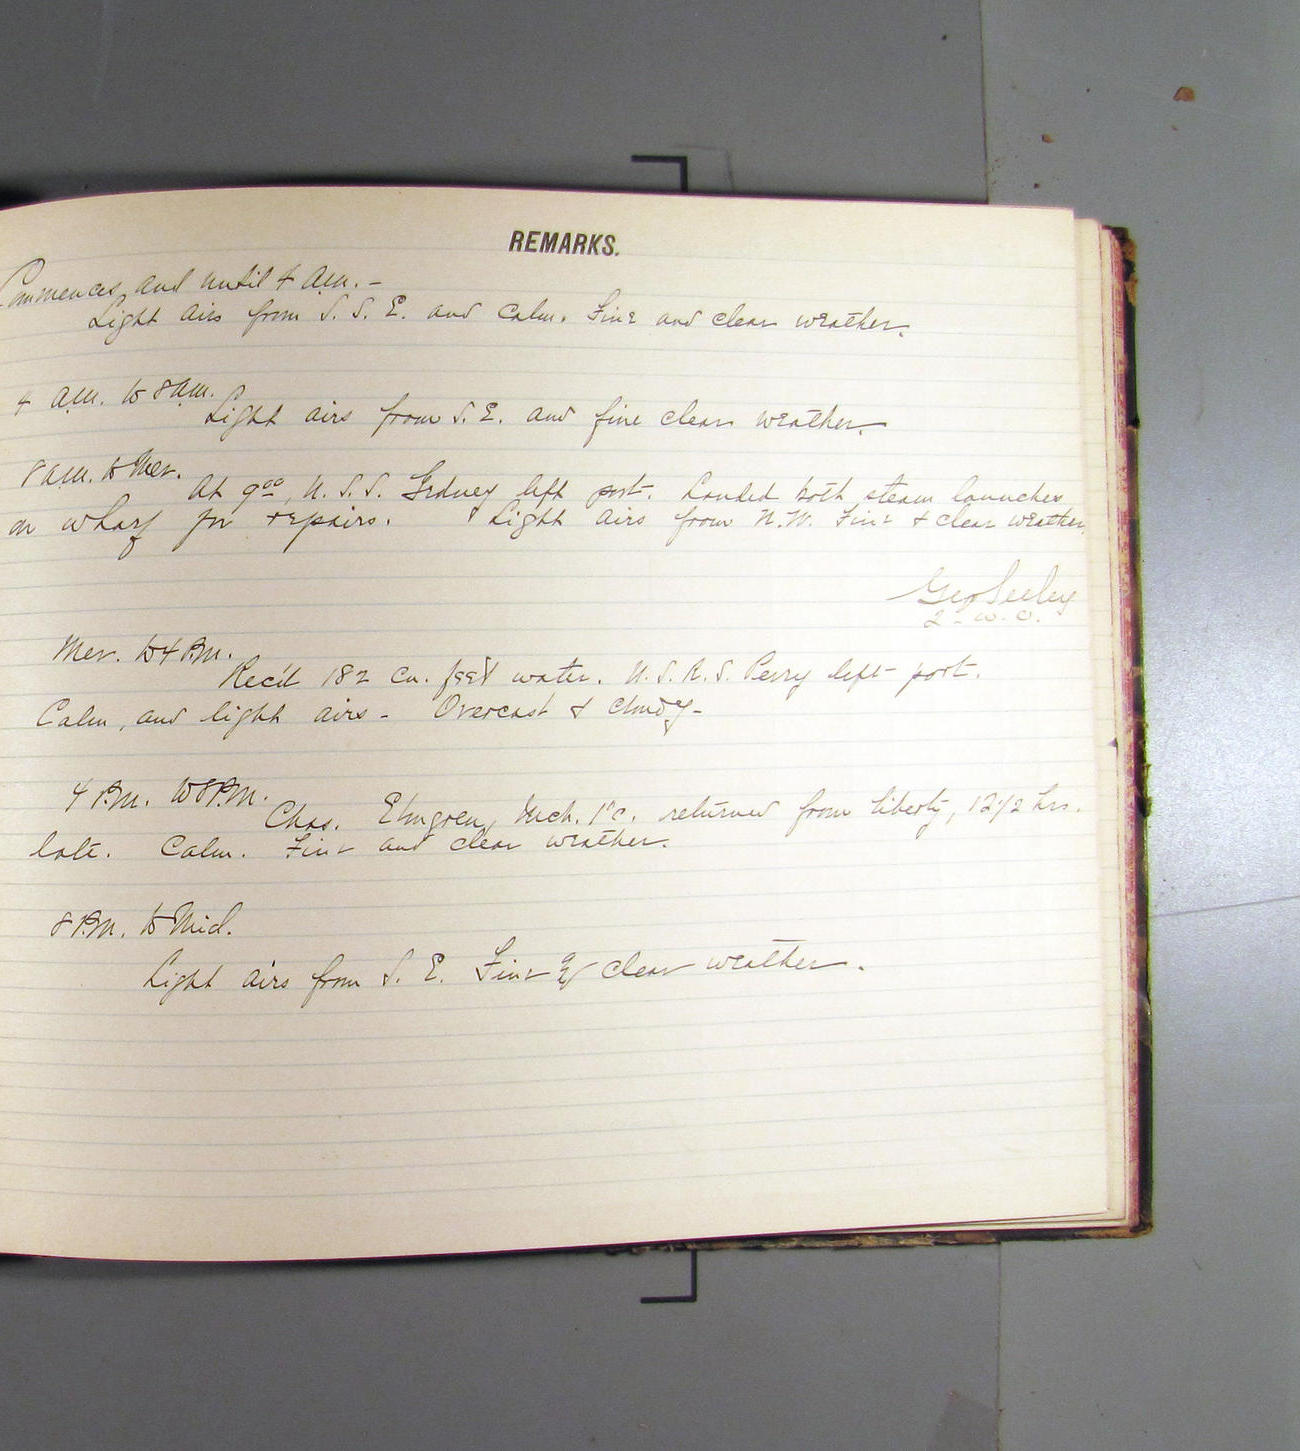 REMARKS.
Commences and until 4 a.m. -
Light airs from S. S. E. and calm. Fine and clear weather.
4 a.m. to 8 a.m.
Light airs from S. E. and fine clear weather.
8 a.m. to Mer.
At 9 00, U. S. S. Gedney left port. Landed both steam launches
on wharf for repairs. Light airs from N.W. Fine & clear weather.
Geo Seeley
2 - W. O.
Mer. to 4 P.M.
Rec'd 182 cu. feet water. U. S. R. S. Perry left port.
Calm, and light airs - Overcast & cloudy -
4 P.M. to 8 P.M.
Chas. Elmgren, Mch. 1"c. returned from liberty, 12 1/2 hrs.
late. Calm. Fine and clear weather.
8 P.M. to Mid.
Light airs from S. E. Fine & clear weather.